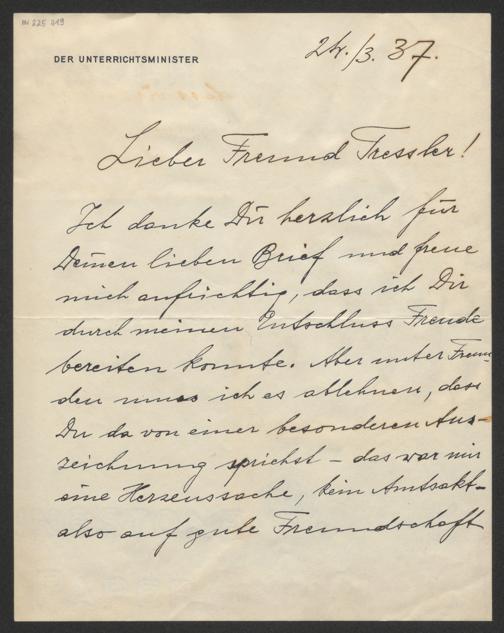 IN 225 219
DER UNTERRICHTSMINISTER
24./3. 37.
Lieber Freund Tressler!
Ich danke Dir herzlich für
Deinen lieben Brief und freue
mich aufrichtig, dass ich Dir
durch meinen Entschluss Freude
bereiten konnte. Aber unter Freun-
den muss ich es ablehnen, dass
Du da von einer besonderen Aus-
zeichnung sprichst – das war mir
eine Herzenssache, kein Amtsakt –
also auf gute Freundschaft